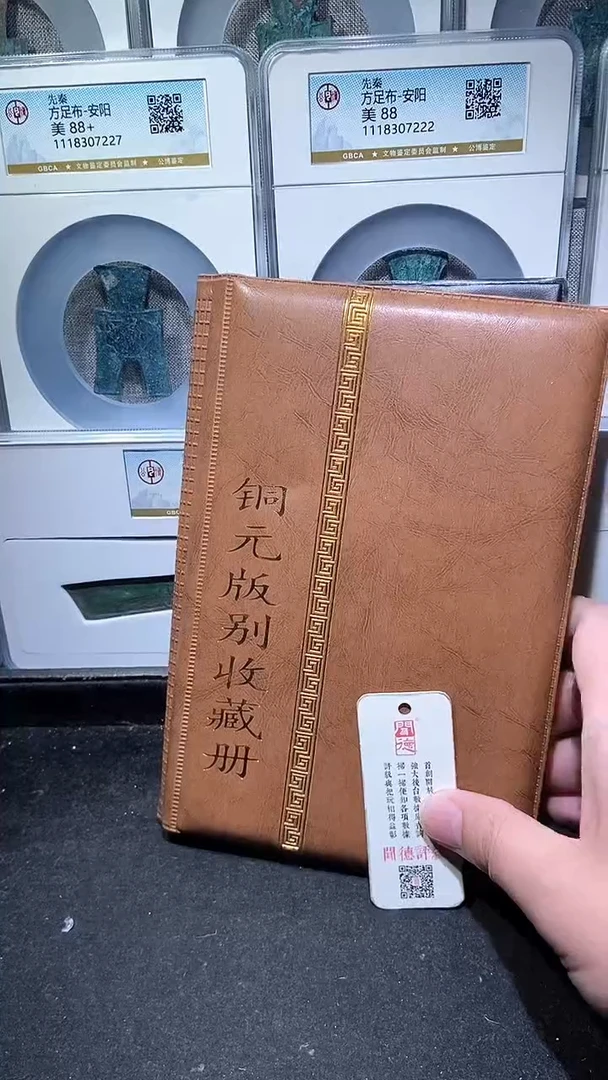 先秦
方足布-安阳
美 88+
1118307227
GBCA ★ 文物鉴定委员会监制 ★ 公博鉴定
先秦
方足布-安阳
美 88
1118307222
GBCA ★ 文物鉴定委员会监制 ★ 公博鉴定
GBCA
铜元版别收藏册
聞德
首創開
強大後台數據
掃一掃便知各項數據
評級與把玩相得益彰
聞德評